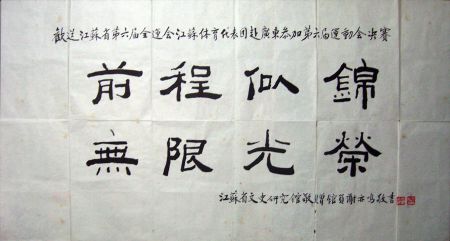 歡送江蘇省第六届全運会江蘇体育代表团赴廣東参加第六届運動会决賽
前程似錦
無限光榮
江蘇省文史研究馆敬贈馆員謝亦鸣敬書